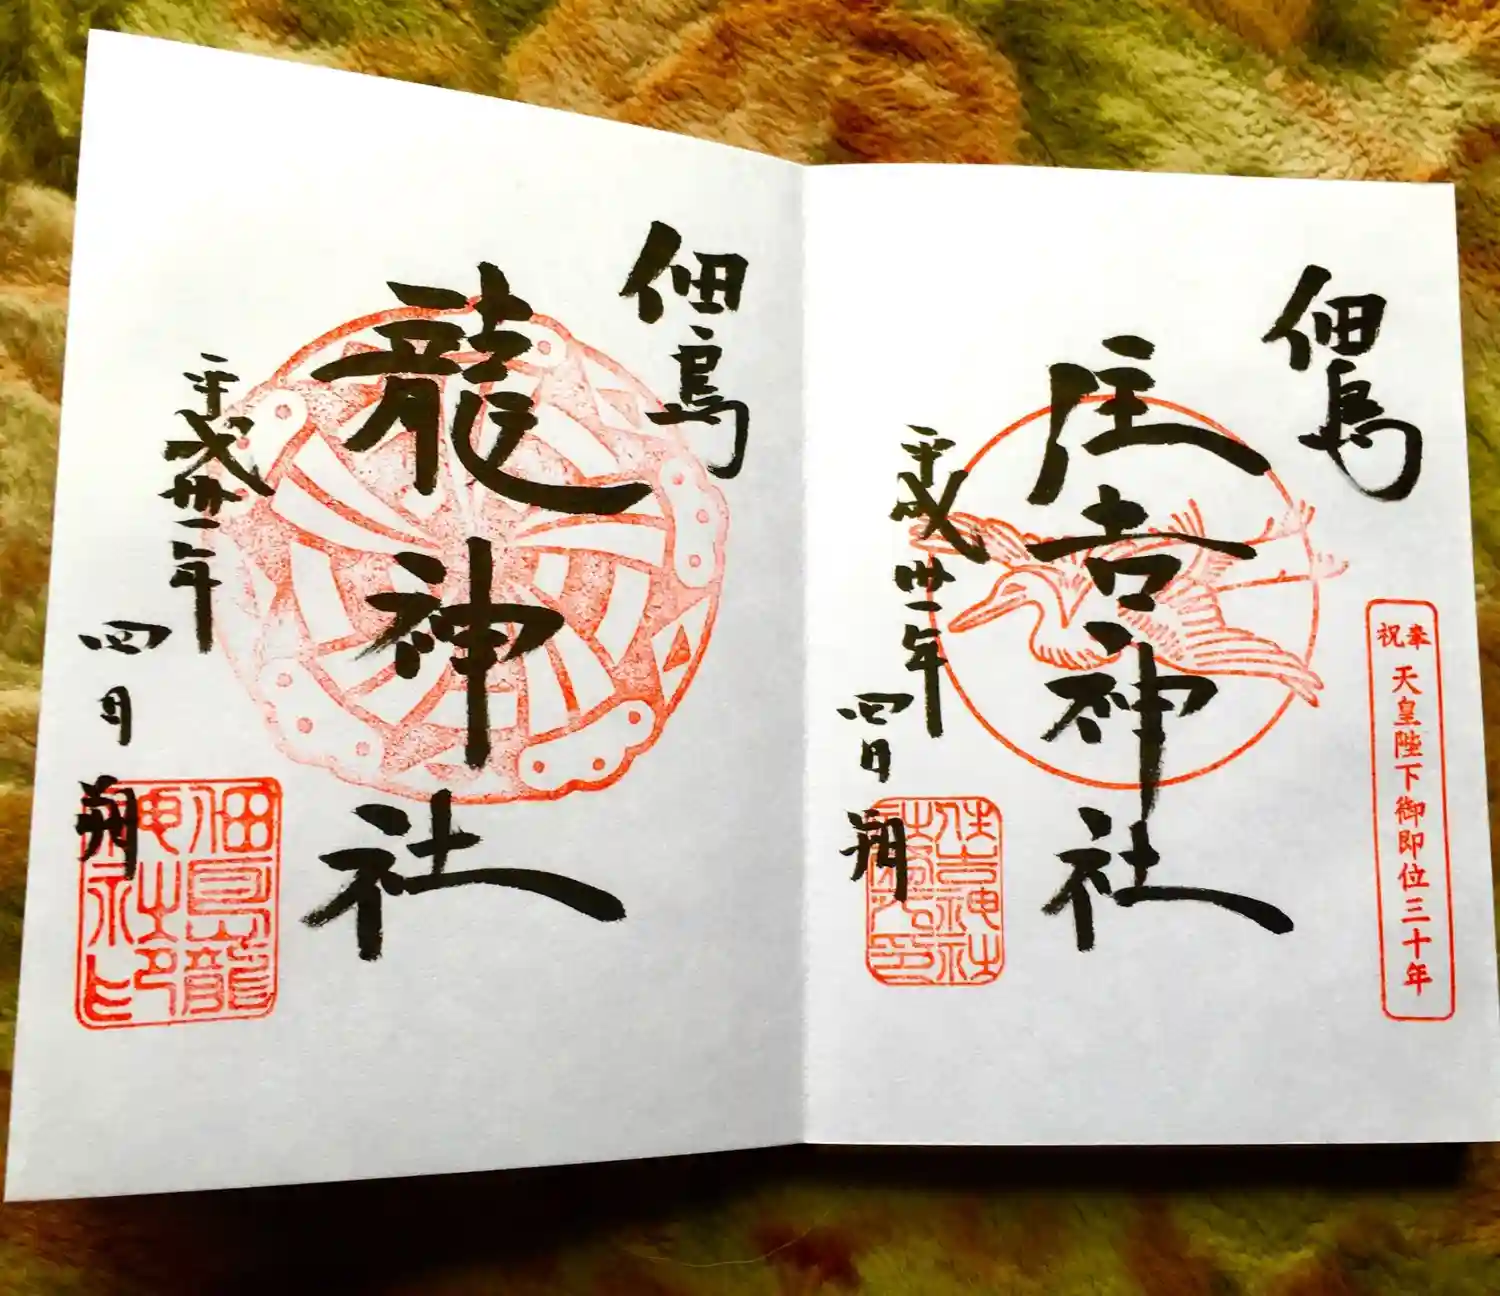 奉祝
天皇陛下御即位三十年
佃島
住吉神社
平成卅一年
四月朔
住吉神社
佃島
龍神社
平成卅一年
四月朔
佃島龍
神社之印